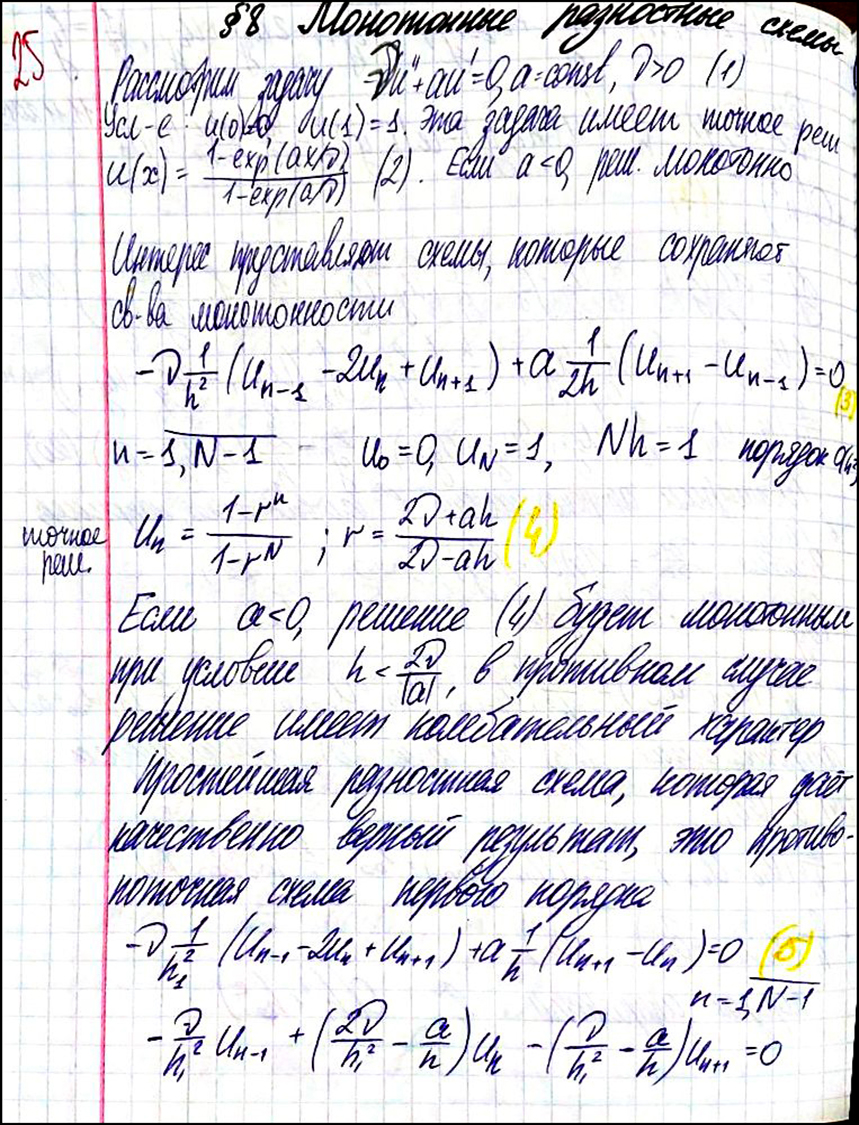 §8 Монотонные разностные схемы
25.
Рассмотрим задачу -νu''+au'=0, a=const, ν>0 (1)
Усл-е: u(0)=0, u(1)=1. Эта задача имеет точное реш
u(x) = \frac{1-exp(ax/ν)}{1-exp(a/ν)} (2). Если a<0, реш. монотонно
Интерес представляют схемы, которые сохраняют
св-ва монотонности
-ν \frac{1}{h^2} (u_{n-1} - 2u_n + u_{n+1}) + a \frac{1}{2h} (u_{n+1} - u_{n-1}) = 0 (3)
n = \overline{1, N-1} - u_0 = 0, u_N = 1, Nh = 1 порядок
точное реш. u_n = \frac{1-r^n}{1-r^N} ; r = \frac{2ν+ah}{2ν-ah} (4)
Если a<0, решение (4) будет монотонным
при условие h < \frac{2ν}{|a|}, в противном случае
решение имеет колебательный характер
Простейшая разностная схема, которая даёт
качественно верный результат, это противо-
поточная схема первого порядка
-ν \frac{1}{h_1^2} (u_{n-1} - 2u_n + u_{n+1}) + a \frac{1}{h} (u_{n+1} - u_n) = 0 (5)
n = \overline{1, N-1}
-\frac{ν}{h_1^2} u_{n-1} + (\frac{2ν}{h_1^2} - \frac{a}{h}) u_n - (\frac{ν}{h_1^2} - \frac{a}{h}) u_{n+1} = 0